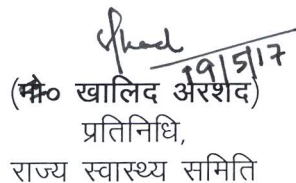 19/5/17
(मो० खालिद अरशद)
प्रतिनिधि,
राज्य स्वास्थ्य समिति